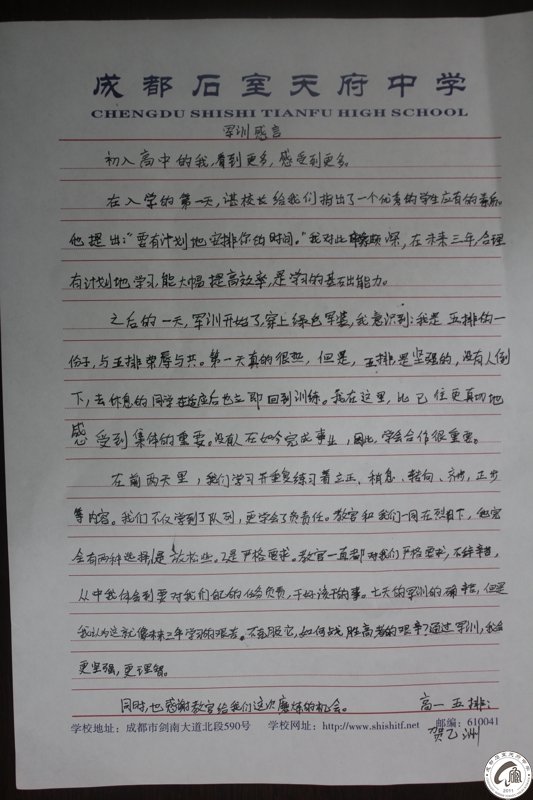 成都石室天府中学
CHENGDU SHISHI TIANFU HIGH SCHOOL
军训感言
初入高中的我,看到更多,感受到更多。
在入学的第一天,湛校长给我们指出了一个优秀的学生应有的素质。
他提出:“要有计划地安排你的时间。”我对此 深,在未来三年,合理
有计划地学习,能大幅提高效率,是学习的基础能力。
之后的一天,军训开始了,穿上绿色军装,我意识到:我是五排的一
份子,与五排荣辱与共。第一天真的很热,但是,五排是坚强的,没有人倒
下,去休息的同学在适应后也立即回到训练。我在这里,比已往更真切地
感受到集体的重要。没有人在如今完成事业,因此,学会合作很重要。
在前两天里,我们学习并重复练习着立正、稍息、转向、齐步,正步
等内容。我们不仅学到了队列,更学会了负责任。教官和我们一同在烈日下,他完
全有两种选择:1是放松些。2是严格要求。教官一直都对我们严格要求,不辞辛苦,
从中我体会到要对我们自己的任务负责,干好该干的事。七天的军训的确辛苦,但是
我认为这就像未来三年学习的艰苦。不克服它,如何战胜高考的艰辛?通过军训,我会
更坚强,更理智。
同时,也感谢教官给我们这次磨炼的机会。 高一五排:
贺乙洲
学校地址:成都市剑南大道北段590号 学校网址:http://www.shishitf.net 邮编:610041
2011